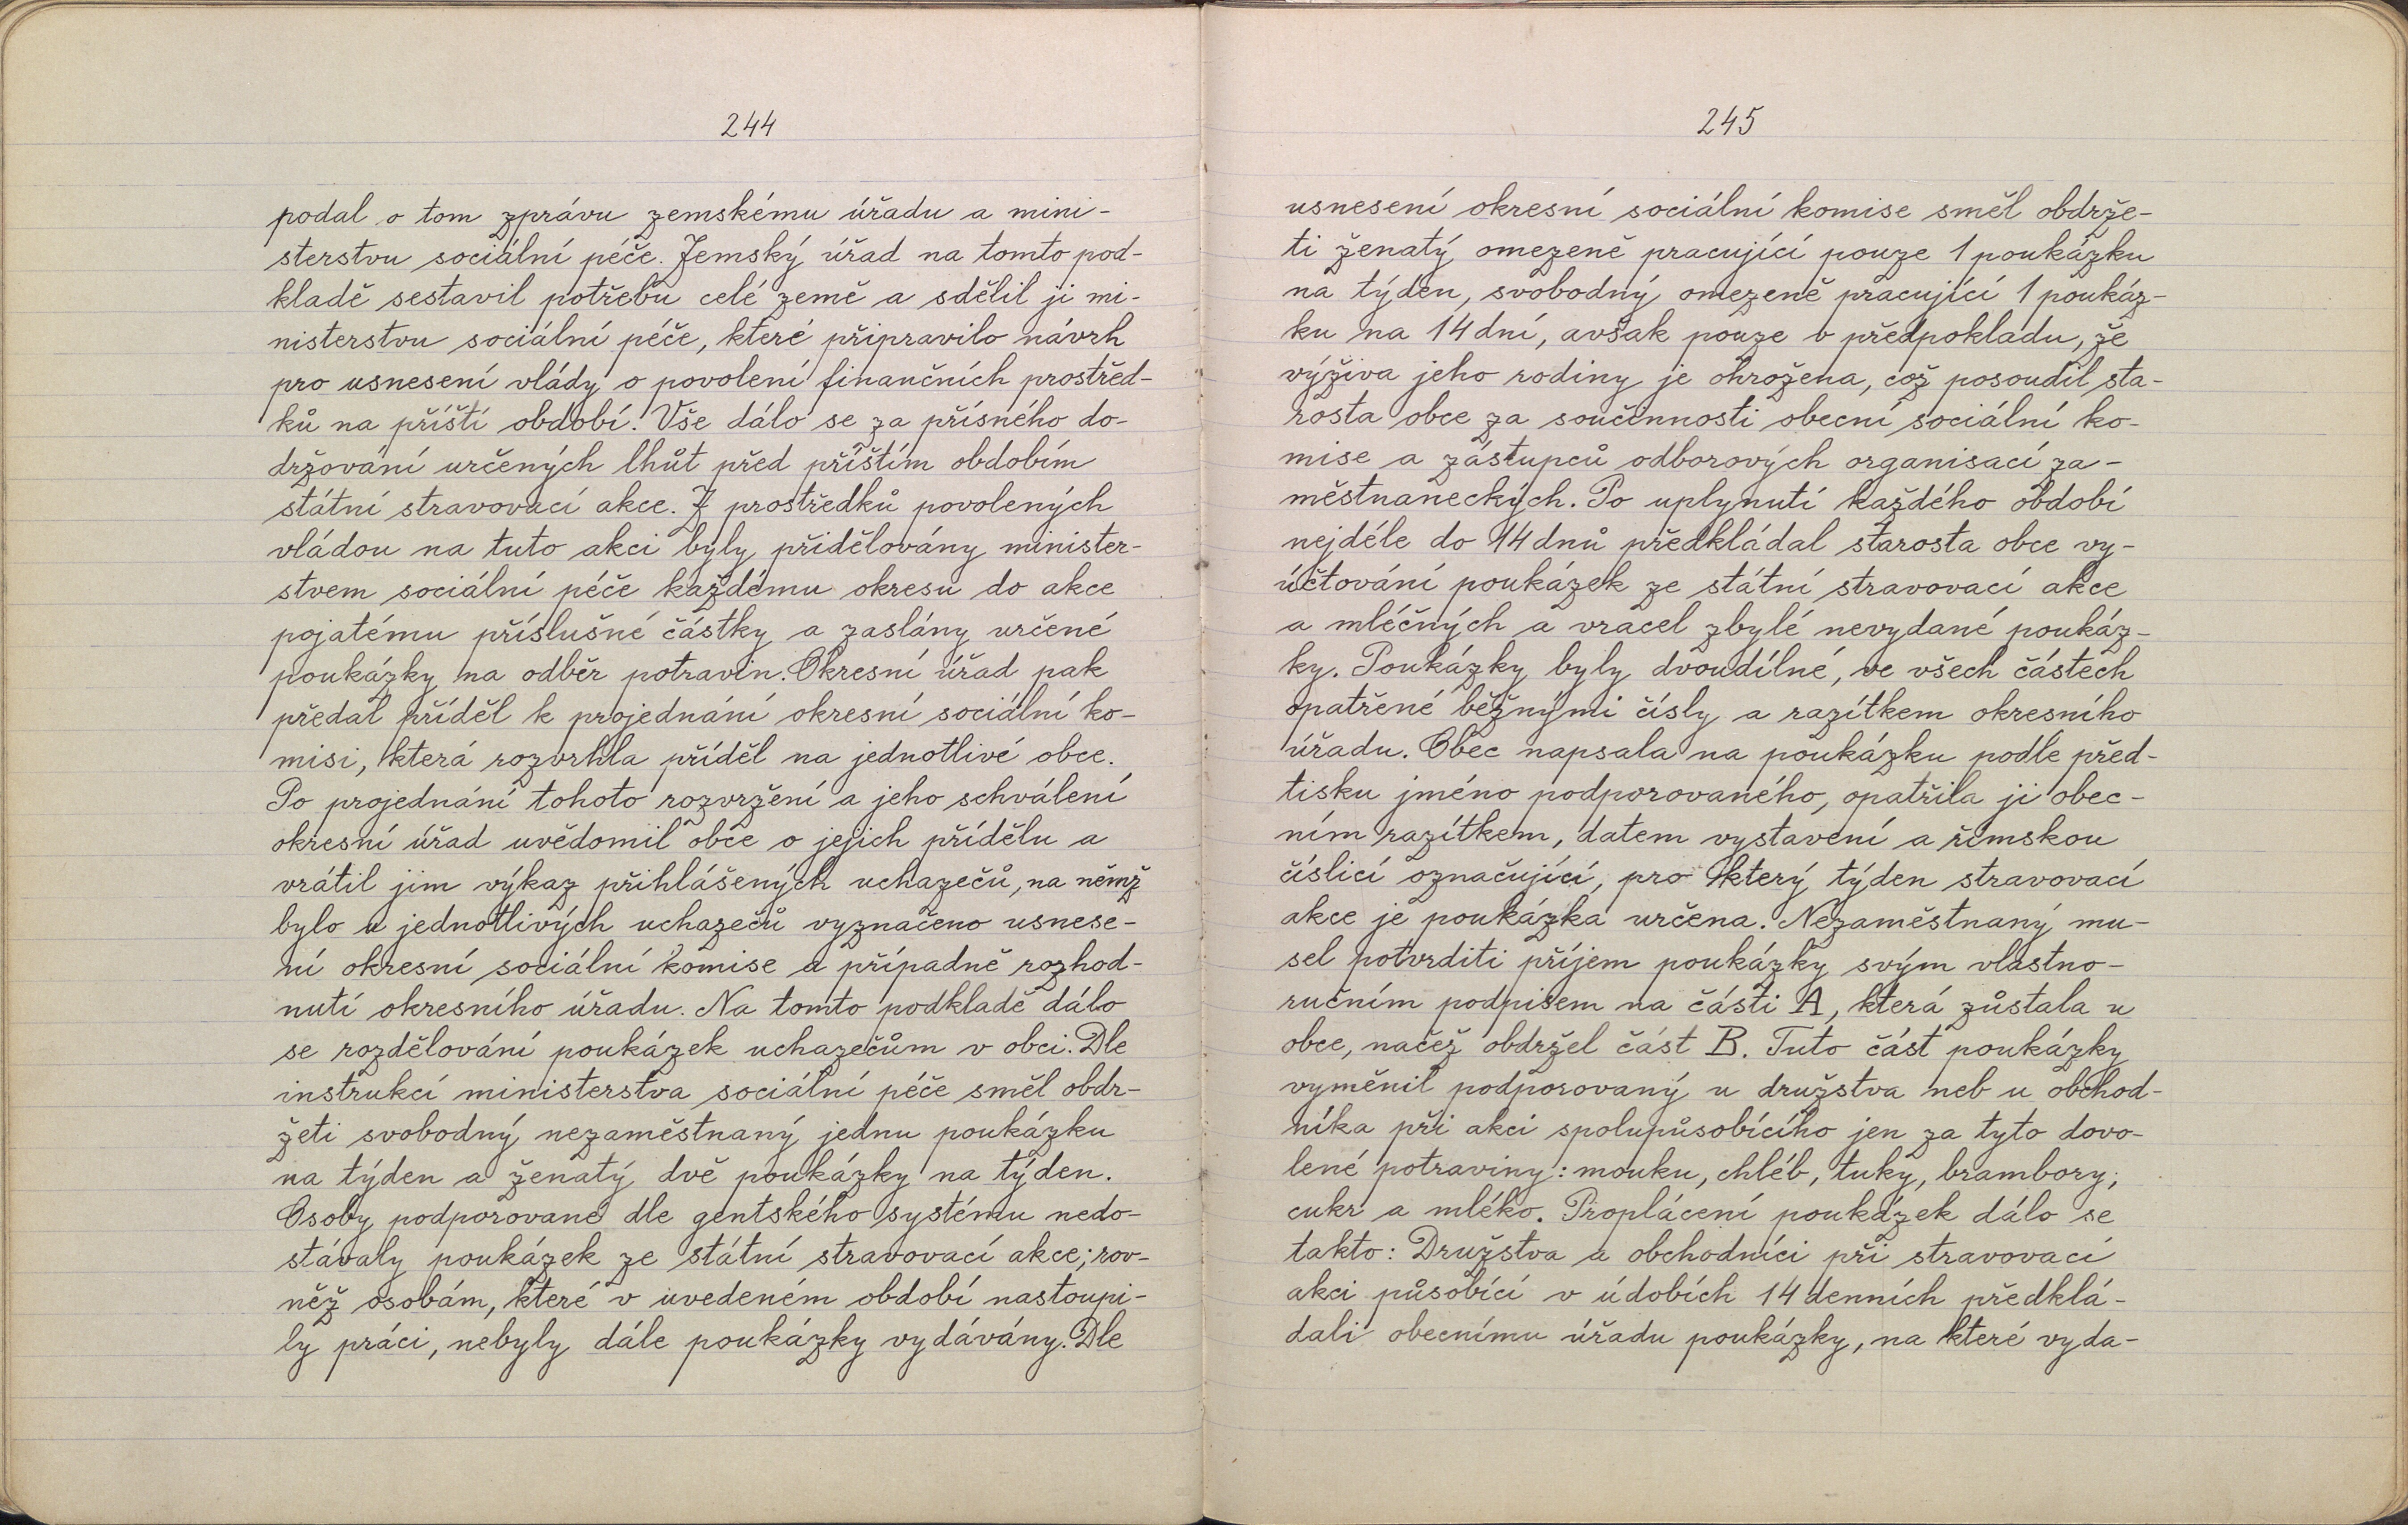 244
podal o tom zprávu zemskému úřadu a mini-
sterstvu sociální péče. Zemský úřad na tomto pod-
kladě sestavil potřebu celé země a sdělil ji mi-
nisterstvu sociální péče, které připravilo návrh
pro usnesení vlády o povolení finančních prostřed-
ků na příští období. Vše dálo se za přísného do-
držování určených lhůt před příštím obdobím
státní stravovací akce. Z prostředků povolených
vládou na tuto akci byly přidělovány minister-
stvem sociální péče každému okresu do akce
pojatému příslušné částky a zaslány určené
poukázky na odběr potravin. Okresní úřad pak
předal příděl k projednání okresní sociální ko-
misi, která rozvrhla příděl na jednotlivé obce.
Po projednání tohoto rozvržení a jeho schválení
okresní úřad uvědomil obce o jejich přídělu a
vrátil jim výkaz přihlášených uchazečů, na němž
bylo u jednotlivých uchazečů vyznačeno usnese-
ní okresní sociální komise a případně rozhod-
nutí okresního úřadu. Na tomto podkladě dálo
se rozdělování poukázek uchazečům v obci. Dle
instrukcí ministerstva sociální péče směl obdr-
žeti svobodný nezaměstnaný jednu poukázku
na týden a ženatý dvě poukázky na týden.
Osoby podporované dle gentského systému nedo-
stávaly poukázek ze státní stravovací akce; rov-
něž osobám, které v uvedeném období nastoupi-
ly práci, nebyly dále poukázky vydávány. Dle
245
usnesení okresní sociální komise směl obdrže-
ti ženatý omezeně pracující pouze 1 poukázku
na týden, svobodný omezeně pracující 1 poukáz-
ku na 14 dní, avšak pouze v předpokladu, že
výživa jeho rodiny je ohrožena, což posoudil sta-
rosta obce za součinnosti obecní sociální ko-
mise a zástupců odborových organisací za-
městnaneckých. Po uplynutí každého období
nejdéle do 14 dnů předkládal starosta obce vy-
účtování poukázek ze státní stravovací akce
a mléčných a vracel zbylé nevydané poukáz-
ky. Poukázky byly dvoudílné, ve všech částech
opatřené běžnými čísly a razítkem okresního
úřadu. Obec napsala na poukázku podle před-
tisku jméno podporovaného, opatřila ji obec-
ním razítkem, datem vystavení a římskou
číslicí označující, pro který týden stravovací
akce je poukázka určena. Nezaměstnaný mu-
sel potvrditi příjem poukázky svým vlastno-
ručním podpisem na části A, která zůstala u
obce, načež obdržel část B. Tuto část poukázky
vyměnil podporovaný u družstva neb u obchod-
níka při akci spolupůsobícího jen za tyto dovo-
lené potraviny: mouku, chléb, tuky, brambory,
cukr a mléko. Proplácení poukázek dálo se
takto: Družstva a obchodníci při stravovací
akci působící v údobích 14 denních předklá-
dali obecnímu úřadu poukázky, na které vyda-